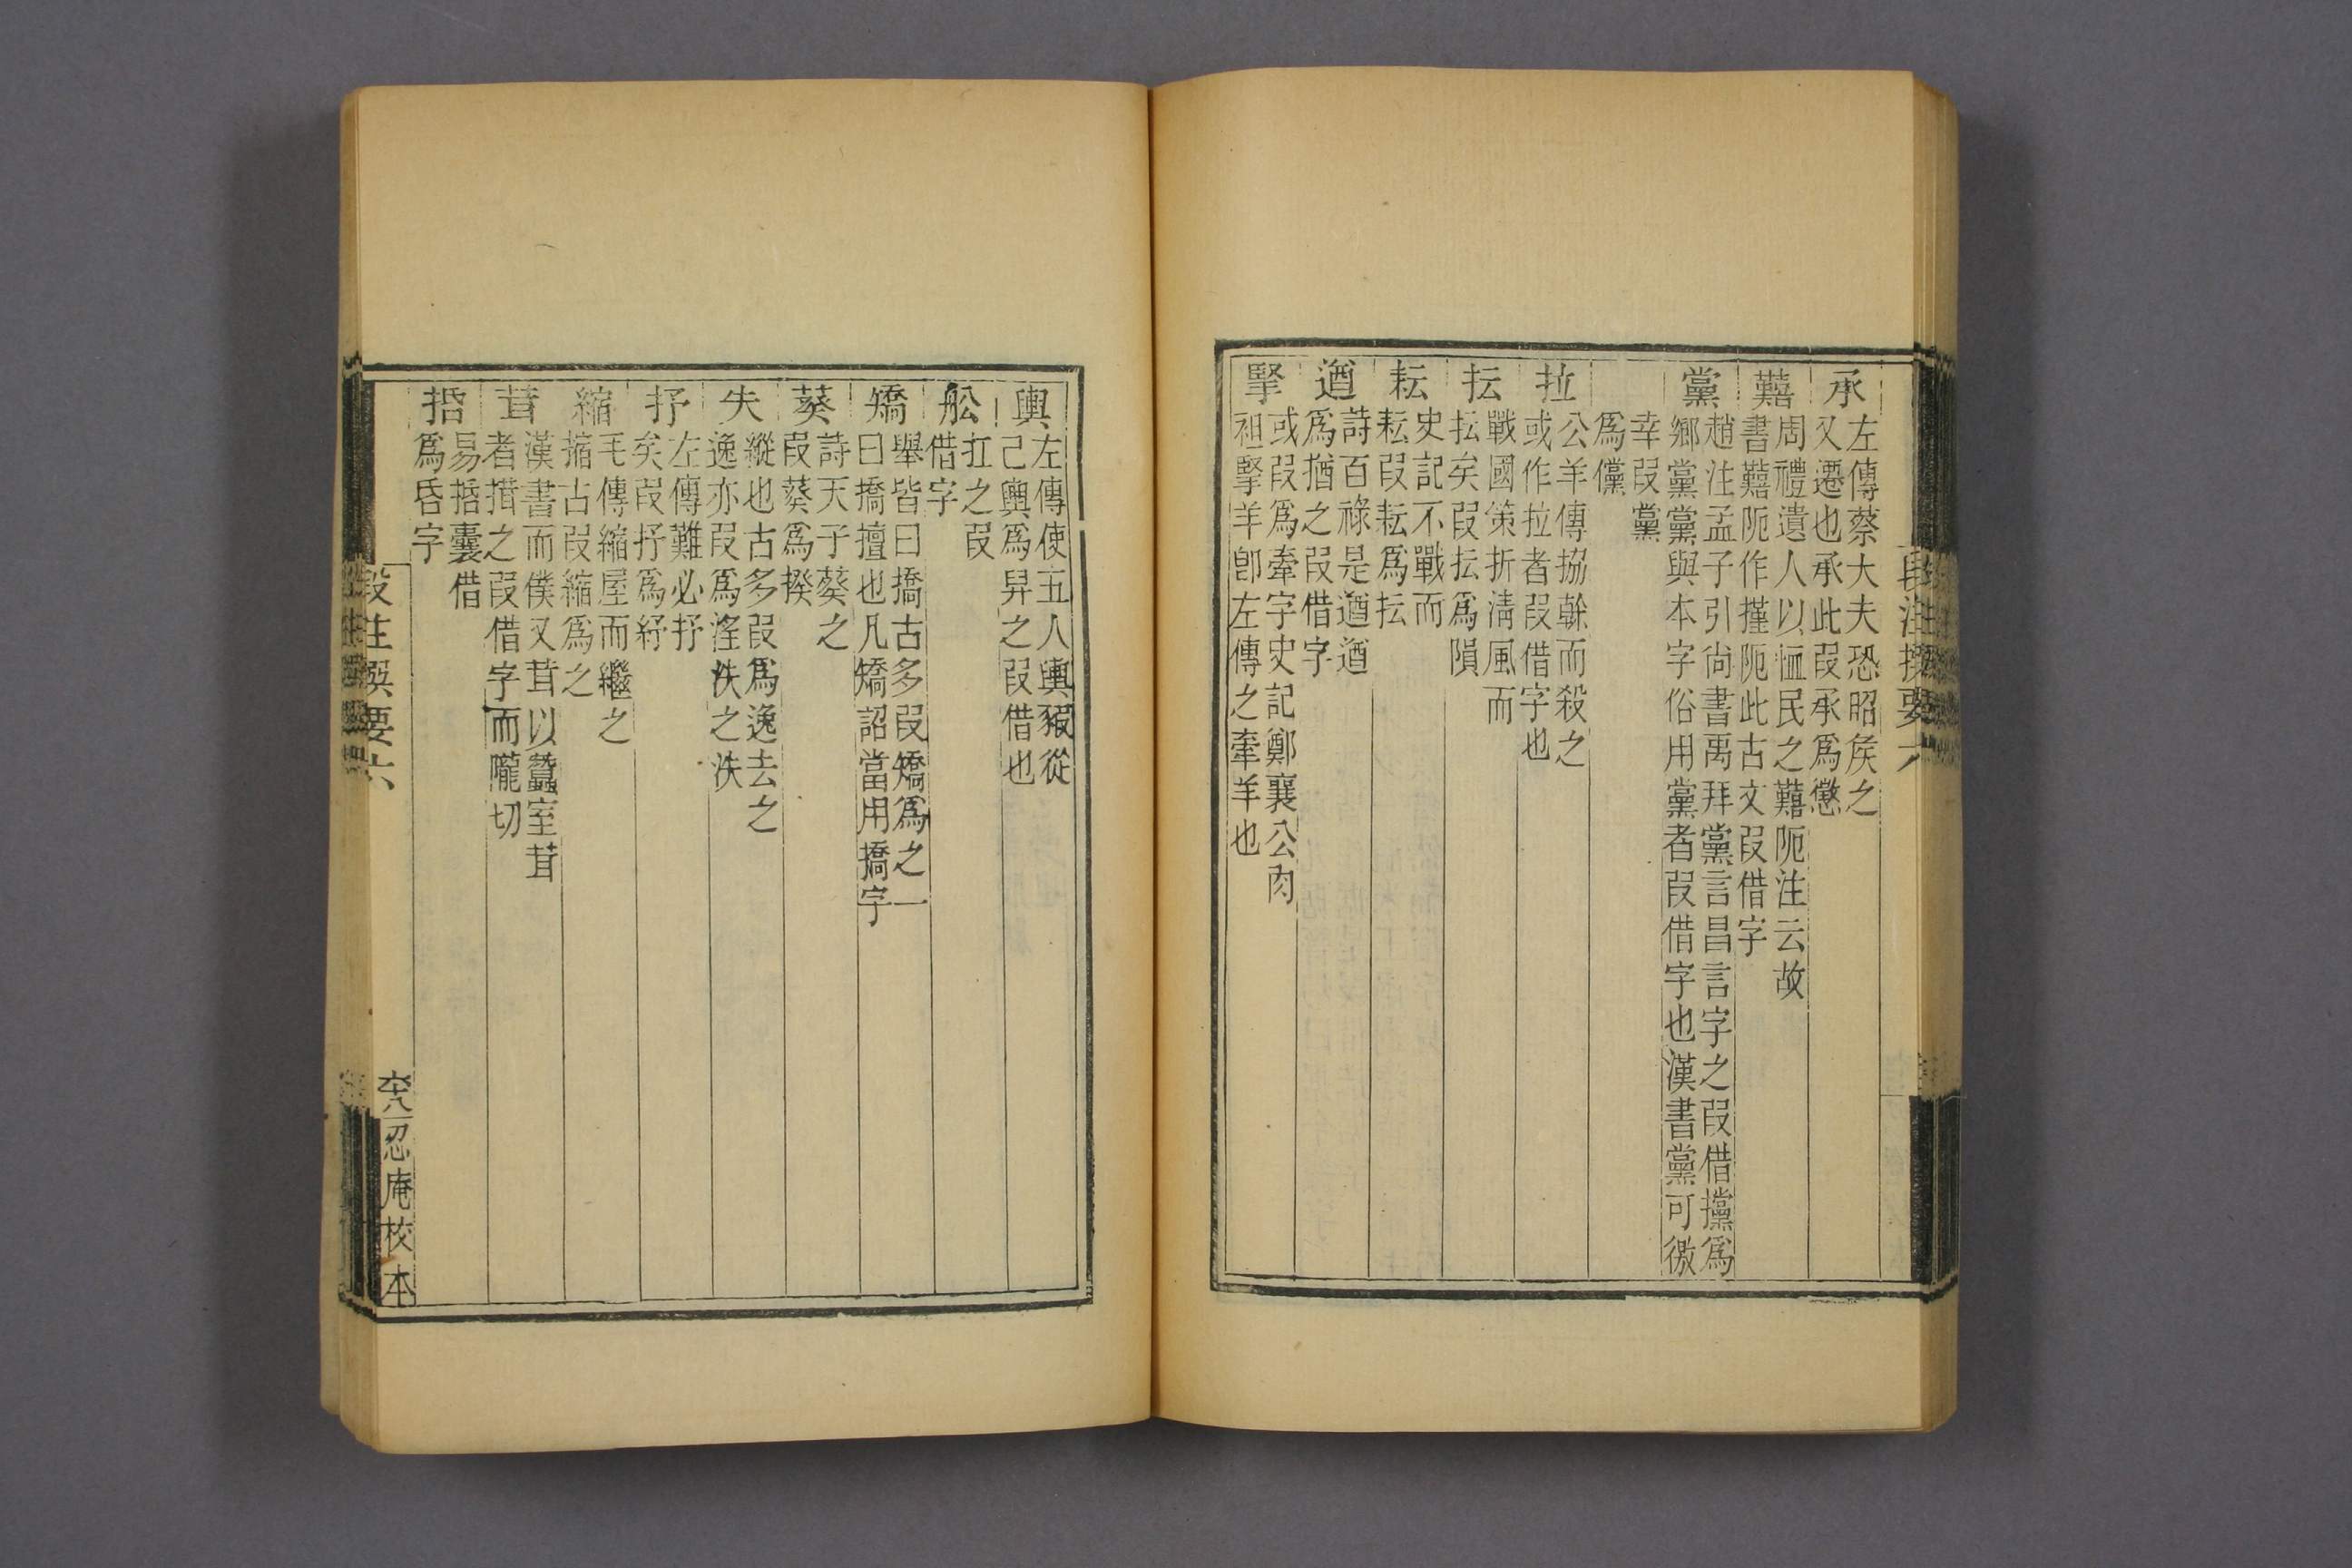 承
左傳蔡大夫恐昭矦之
又遷也承此叚承爲懲
囏
周禮遺人以恤民之囏阨注云故
書囏阨作撞阨此古文叚借字
黨
趙注孟子引尚書禹拜黨言昌言字之叚借攩爲
鄉黨黨與本字俗用黨者叚借字也漢書黨可徼
幸叚黨
爲儻
拉
公羊傳協幹而殺之
或作拉者叚借字也
抎
戰國策折清風而
抎矣叚抎爲隕
耘
史記不戰而
耘叚耘爲抎
遒
詩百祿是遒遒
爲揂之叚借字
掔
或叚爲牽字史記鄭襄公肉
袒掔羊卽左傳之牽羊也
輿
左傳使五人輿豭從
己輿爲舁之叚借也
舩
扛之叚
借字
矯
舉皆曰撟古多叚矯爲之一
曰撟擅也凡矯詔當用撟字
葵
詩天子葵之
叚葵爲揆
失
縱也古多叚爲逸去之
逸亦叚爲淫泆之泆
抒
左傳難必抒
矣叚抒爲紓
縮
毛傳縮屋而繼之
摍古叚縮爲之
茸
漢書而僕又茸以蠶室茸
者搑之叚借字而隴切
括
易括囊借
爲昏字
段注撰要六
忍庵校本